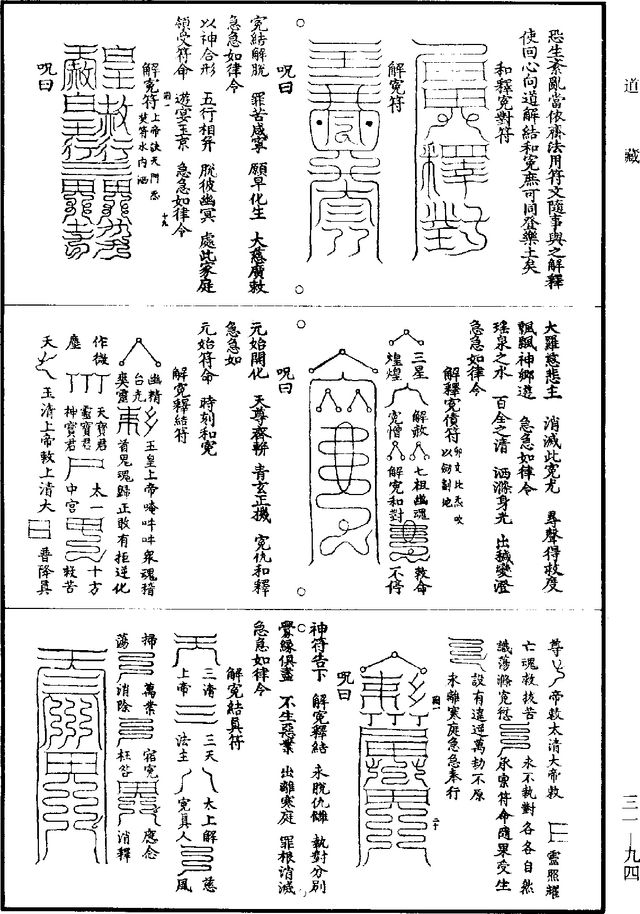 道藏
三一—九四
恐生紊亂當依齋法用符文隨事與之解釋
使回心向道解結和寃庶可同登樂土矣
和釋寃對符
解寃符
呪曰
寃結解脫 罪苦咸寧 願早化生 大慈廣敕
急急如律令
以神合形 五行相并 脫彼幽冥 處此家庭
領受符命 遊宴玉京 急急如律令
解寃符
呪曰
大羅慈悲主 消滅此寃尤 尋聲得救度
飄飄神鄉遊 急急如律令
瑤泉之水 百全之清 洒滌身光 出穢變澄
急急如律令
解釋寃債符
三星 解赦 七祖幽魂 敕命
煌煌 寃憎 解寃和對 不停
呪曰
元始開化 天尊齊軿 青玄正機 寃仇和釋
急急如
元始符命 時刻和寃
解寃釋結符
幽精 玉皇上帝唵吽吽衆魂稽
台光
爽靈 首鬼魂歸正敢有拒逆化
作微 天寶君 太一 十方
塵 靈寶君 神寶君 中宮 救苦
天 玉清上帝敕上清大 普降真
尊 帝敕太清大帝敕 靈照耀
亡魂敕拔苦 永不執對 各各自然
識蕩滌寃愆 承稟符命隨果受生
設有違逆萬劫不原
永離寒庭急急奉行
呪曰
神符告下 解寃釋結 永脫仇讎 執對分別
釁緣俱盡 不生惡業 出離寒庭 罪根消滅
急急如律令
解寃結真符
三清 三天 太上解 慈
上帝 法主 寃真人 風
掃 萬業 宿寃 應念
蕩 消除 枉咎 消釋